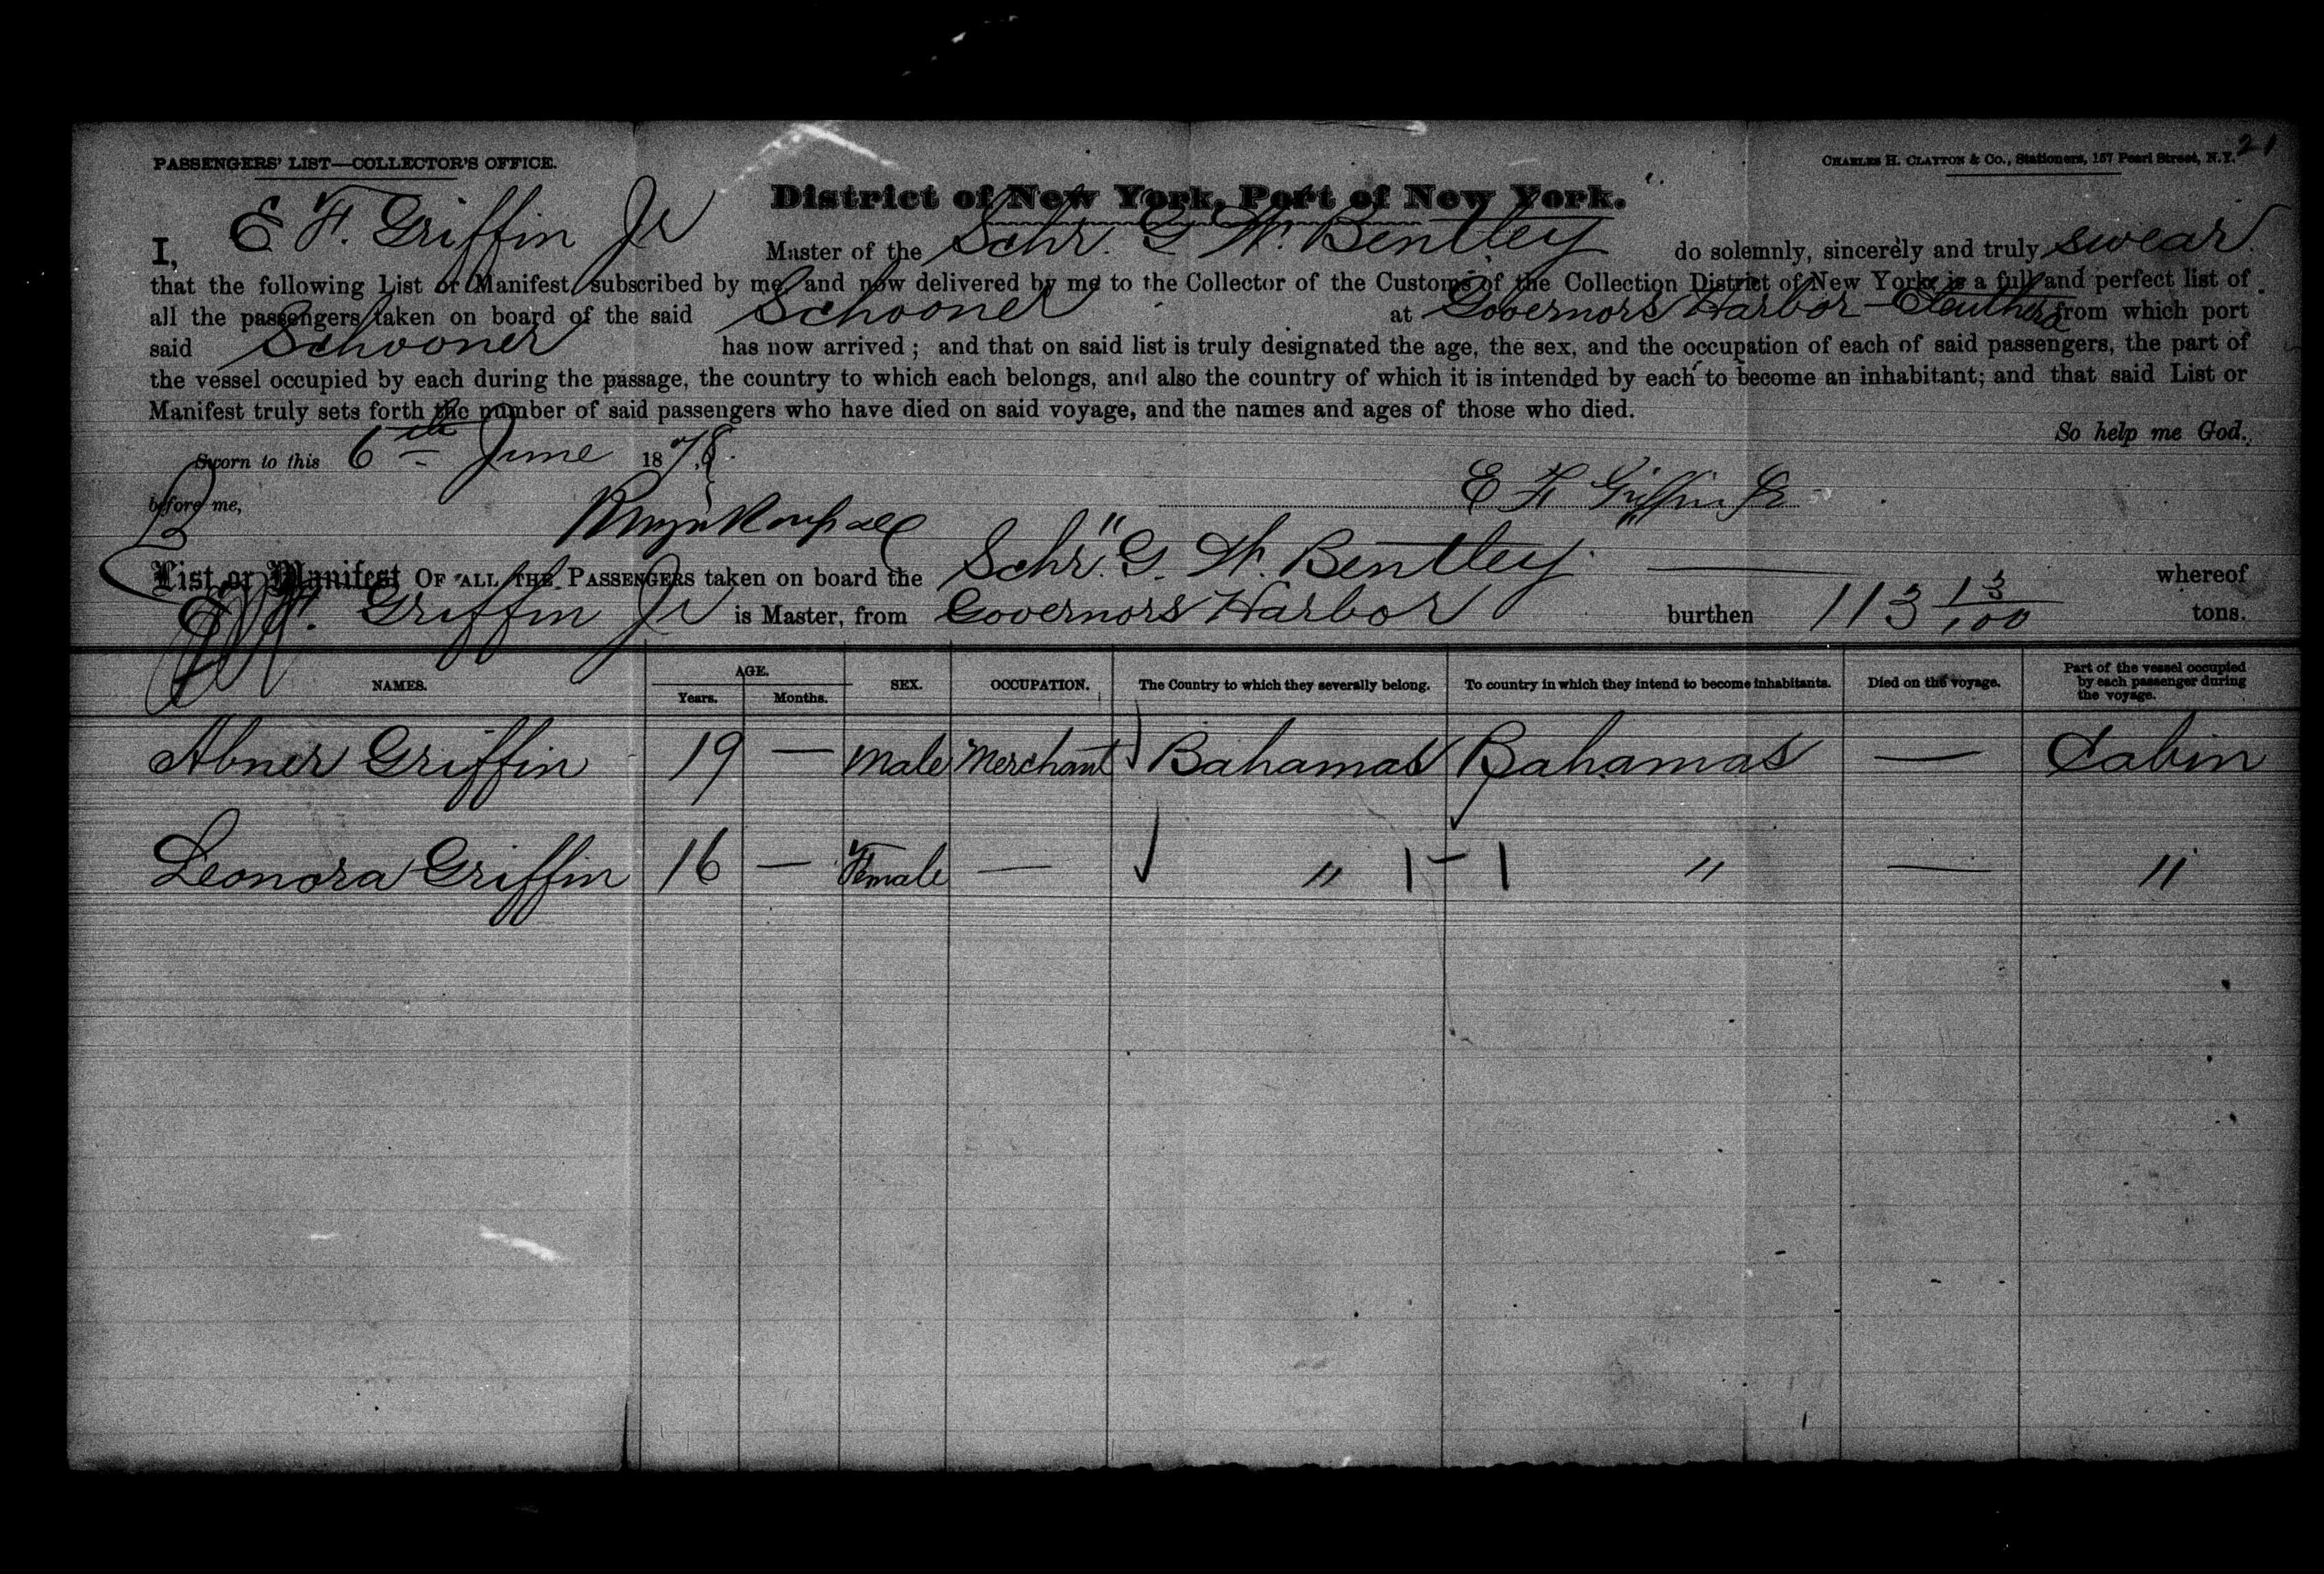 21
PASSENGERS' LIST—COLLECTOR'S OFFICE.
CHARLES H. CLAYTON & Co., Stationers, 157 Pearl Street, N.Y.
District of New York, Port of New York.
I, E. F. Griffin Jr Master of the Schr. G. W. Bentley do solemnly, sincerely and truly swear
that the following List or Manifest, subscribed by me, and now delivered by me to the Collector of the Customs of the Collection District of New York, is a full and perfect list of
all the passengers taken on board of the said Schooner at Governors Harbor — Eleuthera from which port
said Schooner has now arrived; and that on said list is truly designated the age, the sex, and the occupation of each of said passengers, the part of
the vessel occupied by each during the passage, the country to which each belongs, and also the country of which it is intended by each to become an inhabitant; and that said List or
Manifest truly sets forth the number of said passengers who have died on said voyage, and the names and ages of those who died.
So help me God.
Sworn to this 6th June 1878.
before me,
E F Griffin Jr
List or Manifest OF ALL THE PASSENGERS taken on board the Schr. G. W. Bentley whereof
Griffin Jr is Master, from Governors Harbor burthen 113 13/100 tons.
NAMES. AGE. Years. Months. SEX. OCCUPATION. The Country to which they severally belong. To country in which they intend to become inhabitants. Died on the voyage. Part of the vessel occupied by each passenger during the voyage.
Abner Griffin 19 — Male Merchant Bahamas Bahamas — Cabin
Leonora Griffin 16 — Female — " 1 – 1 " — "